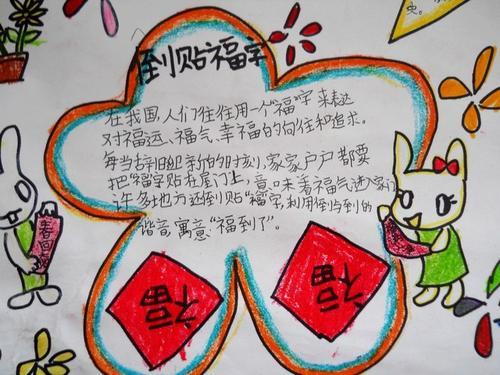 倒贴福字
在我国，人们往往用一个“福”字来表达
对福运、福气、幸福的向往和追求。
每当辞旧迎新的时刻，家家户户都要
把“福”字贴在屋门上，意味着福气进入家门
许多地方还倒贴“福”字，利用倒与到的
谐音，寓意“福到了”。
福
福